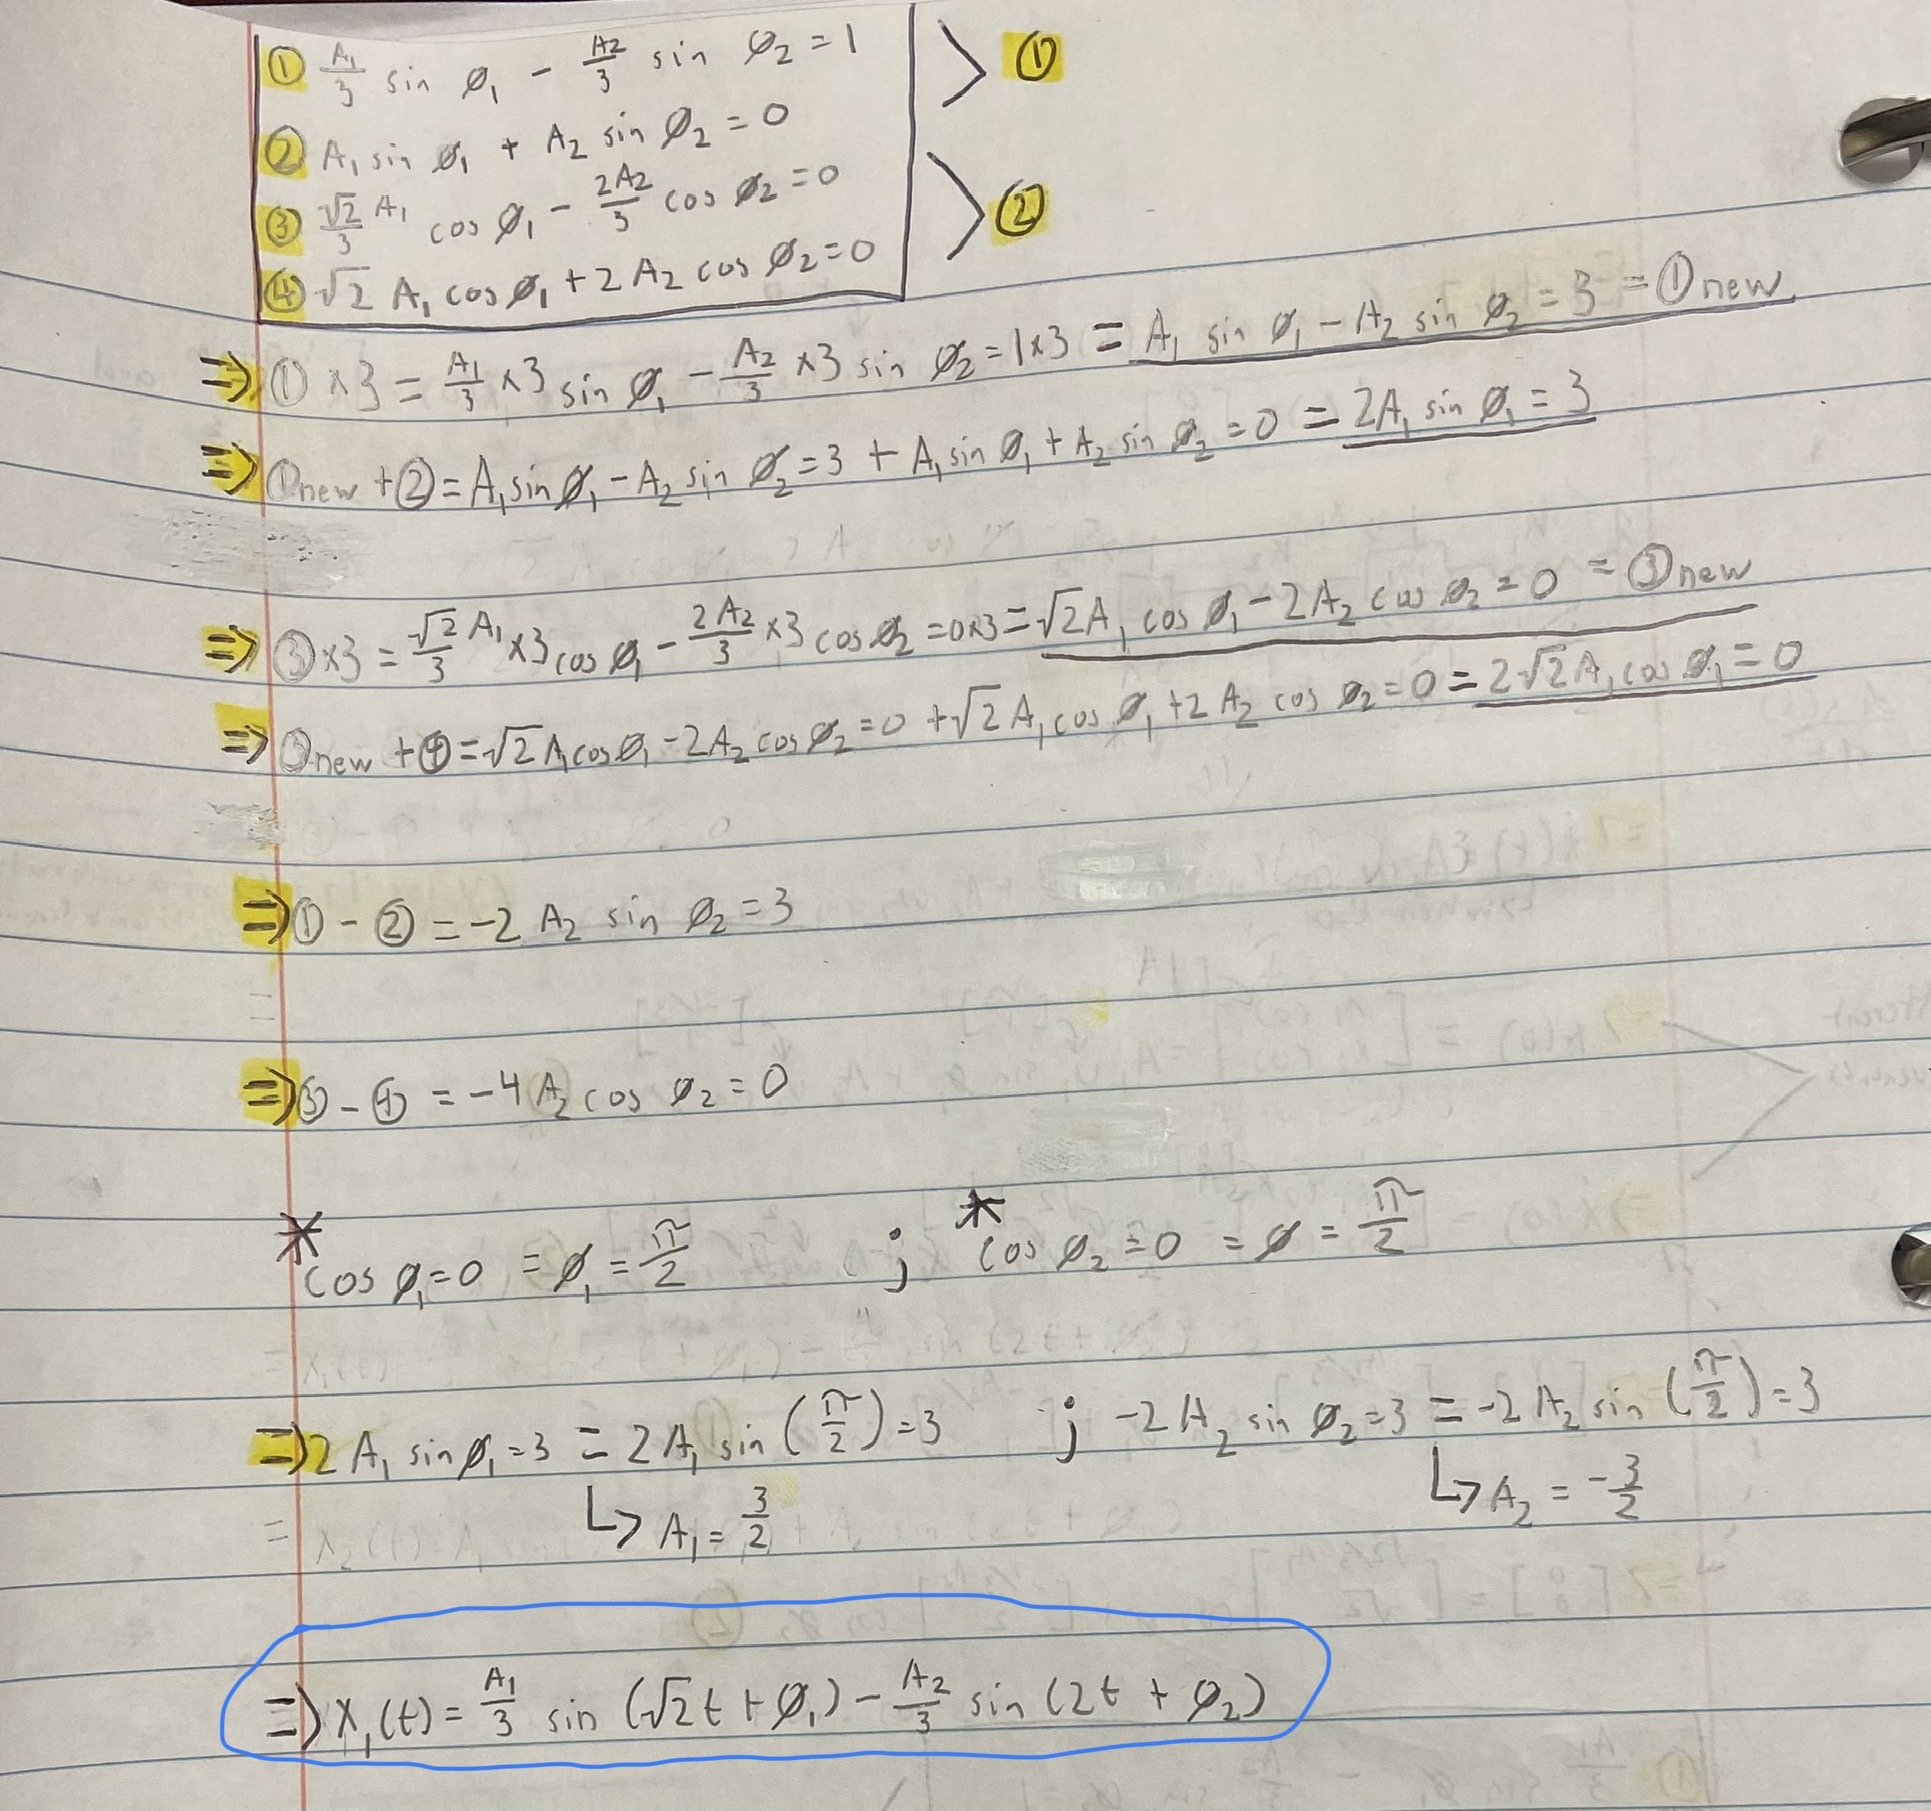 ① A₁/3 sin ø₁ - A₂/3 sin ø₂ = 1 > ①
② A₁ sin ø₁ + A₂ sin ø₂ = 0
③ √2/3 A₁ cos ø₁ - 2A₂/3 cos ø₂ = 0 > ②
④ √2 A₁ cos ø₁ + 2A₂ cos ø₂ = 0
⇒ ① ×3 = A₁/3 ×3 sin ø₁ - A₂/3 ×3 sin ø₂ = 1×3 = A₁ sin ø₁ - A₂ sin ø₂ = 3 = ① new
⇒ ① new + ② = A₁ sin ø₁ - A₂ sin ø₂ = 3 + A₁ sin ø₁ + A₂ sin ø₂ = 0 = 2A₁ sin ø₁ = 3
⇒ ③ ×3 = √2/3 A₁ ×3 cos ø₁ - 2A₂/3 ×3 cos ø₂ = 0×3 = √2 A₁ cos ø₁ - 2A₂ cos ø₂ = 0 = ③ new
⇒ ③ new + ④ = √2 A₁ cos ø₁ - 2A₂ cos ø₂ = 0 + √2 A₁ cos ø₁ + 2A₂ cos ø₂ = 0 = 2√2 A₁ cos ø₁ = 0
⇒ ① - ② = -2 A₂ sin ø₂ = 3
⇒ ③ - ④ = -4 A₂ cos ø₂ = 0
* cos ø₁ = 0 = ø₁ = π/2 ; * cos ø₂ = 0 = ø = π/2
⇒ 2 A₁ sin ø₁ = 3 = 2 A₁ sin (π/2) = 3 ; -2 A₂ sin ø₂ = 3 = -2 A₂ sin (π/2) = 3
↳ A₁ = 3/2 ↳ A₂ = -3/2
⇒ x₁(t) = A₁/3 sin (√2t + ø₁) - A₂/3 sin (2t + ø₂)